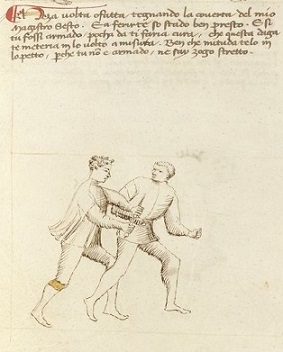 Meza volta o fatta, tegnando la coverta del mio
Magistro Sesto. E a ferirte so stado ben presto. E si
tu fossi armado, pocha da ti faria cura, che questa daga
te meteria in lo volto a misura. Ben che metuda te lo in
lo petto, perche tu no e armado, ne say zogo stretto.